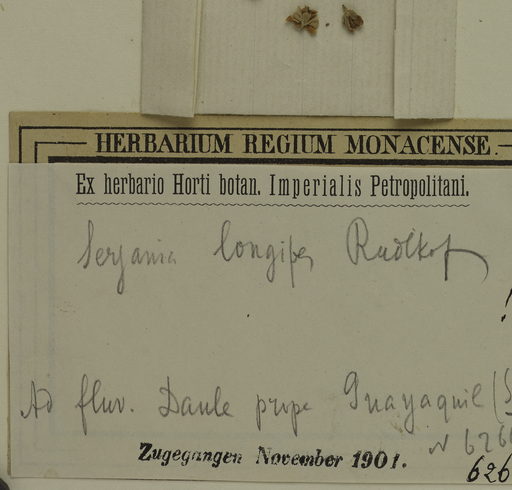 HERBARIUM REGIUM MONACENSE.
Ex herbario Horti botan. Imperialis Petropolitani.
Serjania longipes Radlkof
!
Ad fluv. Daule prope Guayaquil (
N 626
Zugegangen November 1901.
626